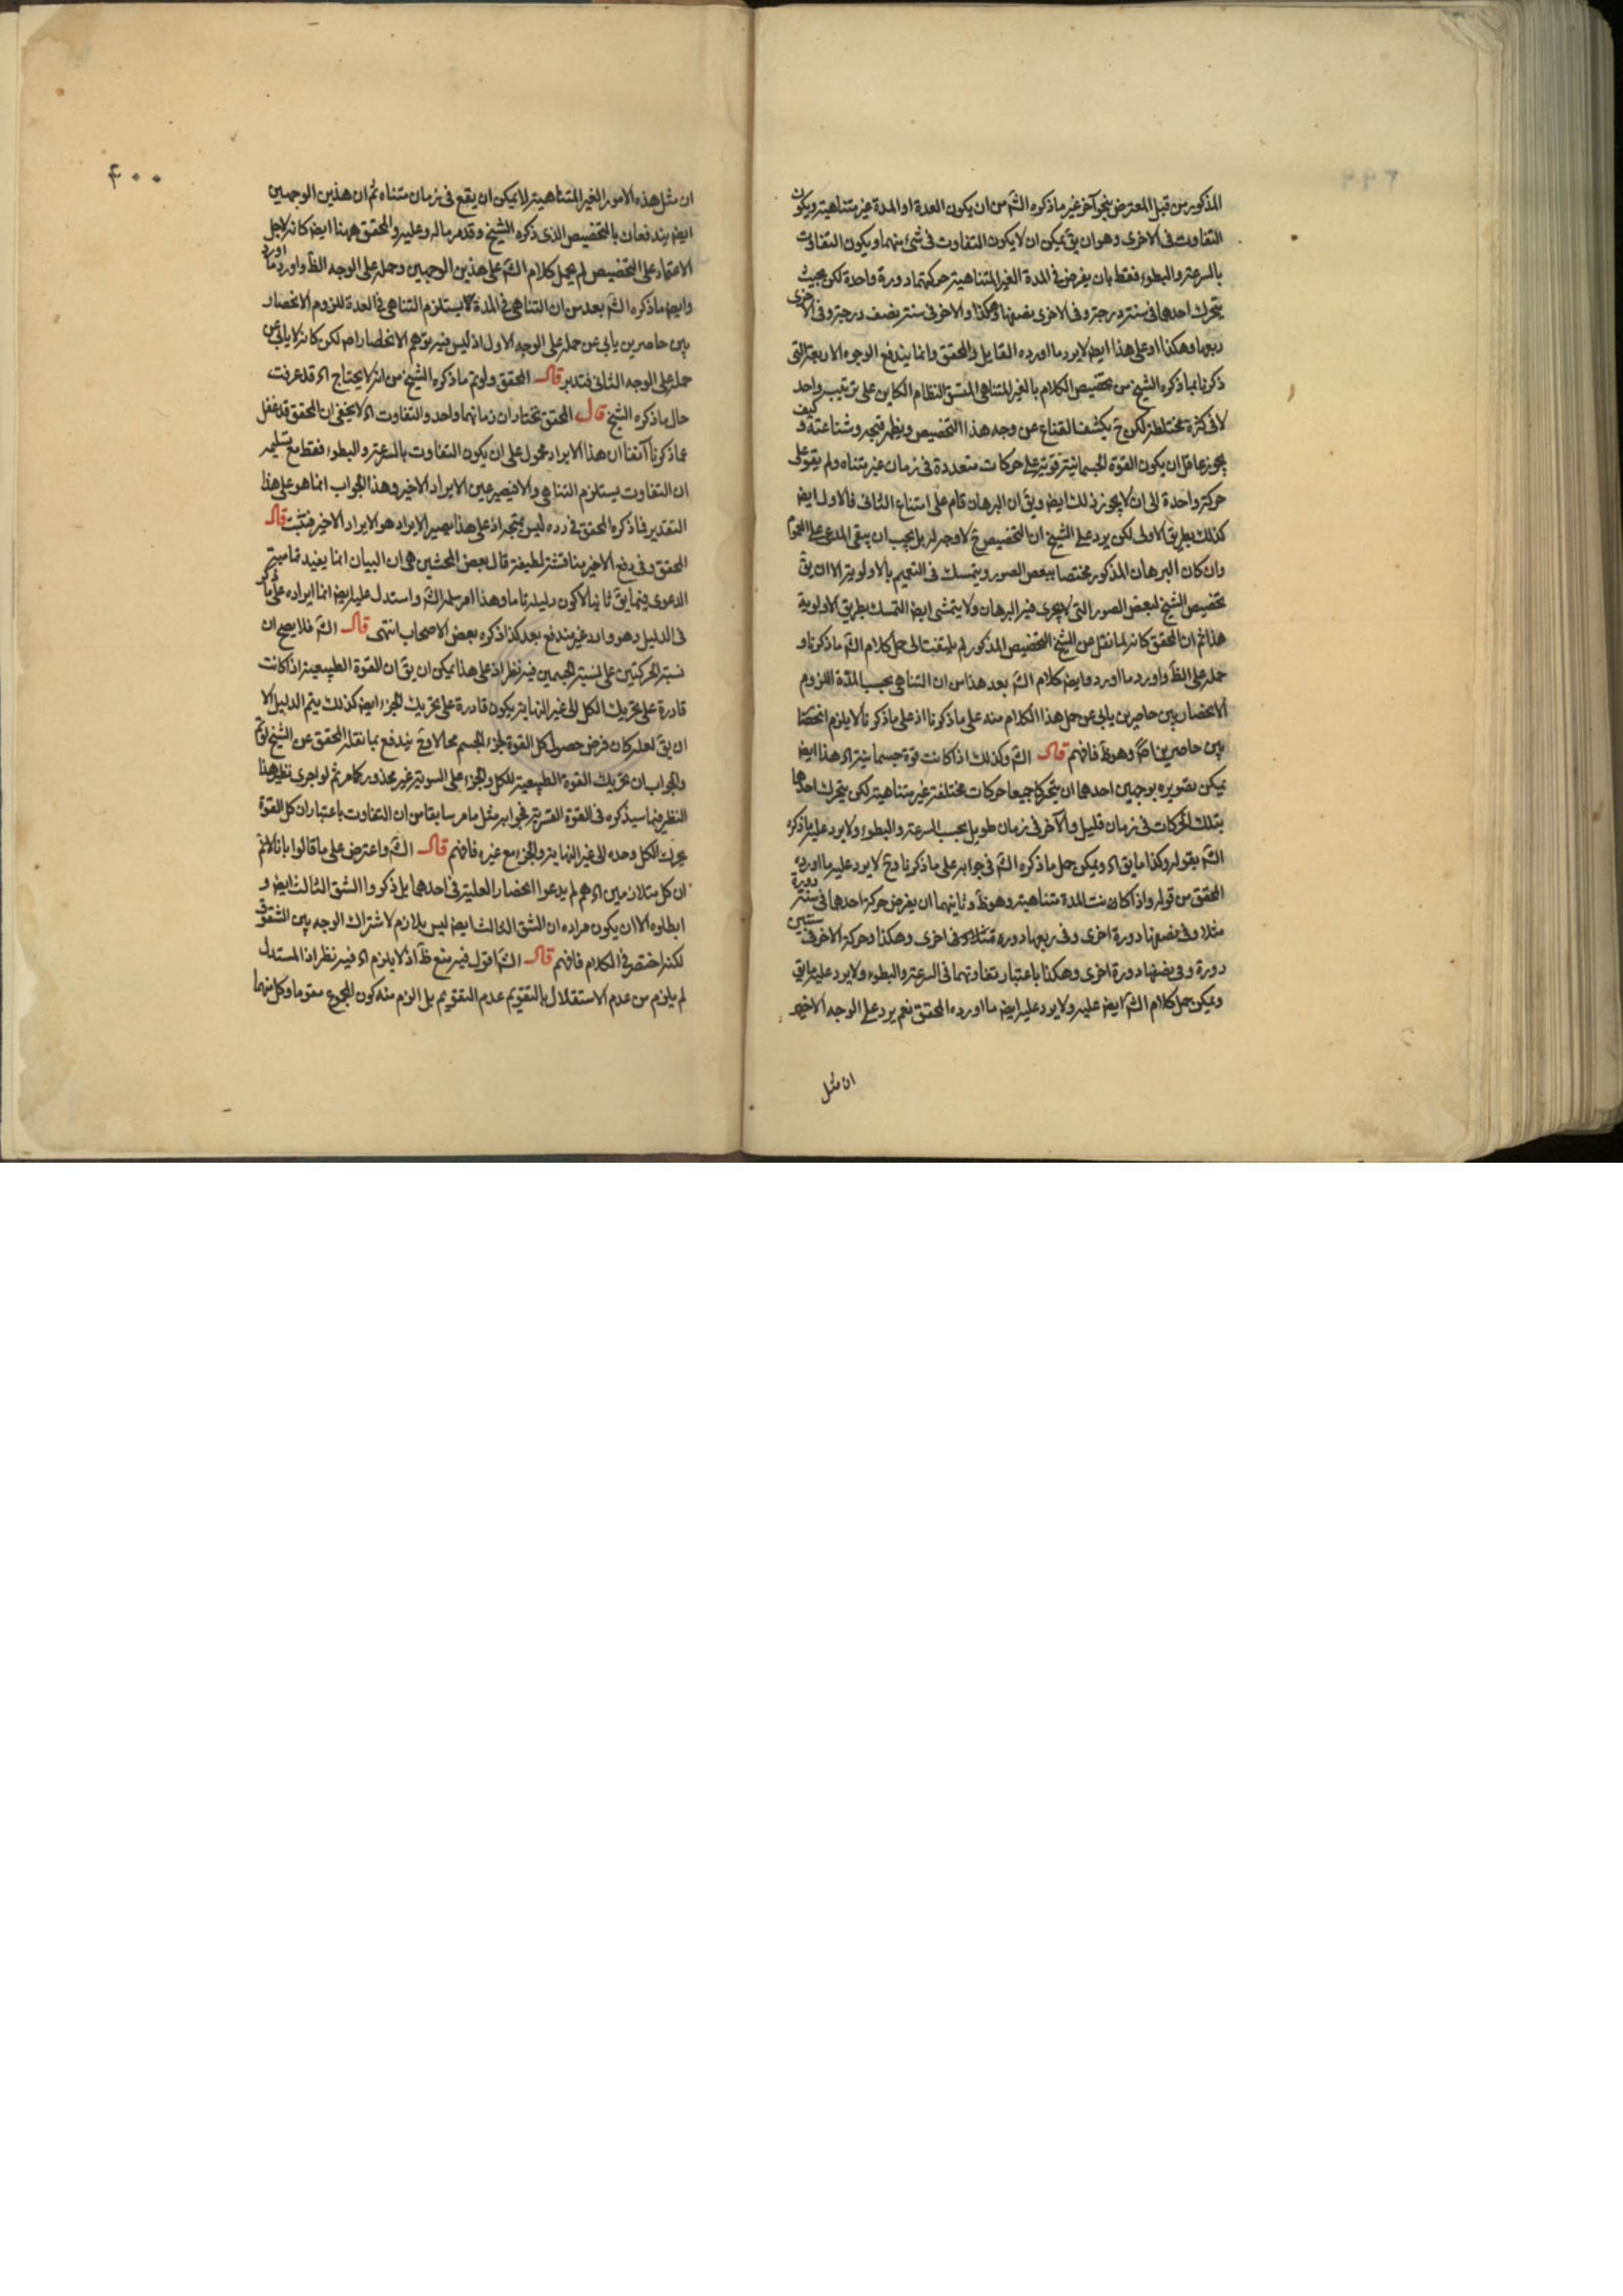 المذكور من قبل المعترض بنحو آخر غير ما ذكره الشَ من ان يكون العدة او المدة غير متناهية ويكون
التفاوت فى الاخرى وهو ان يقَ يمكن ان لا يكون التفاوت فى شئ منهما ويكون التفاوت
بالسرعة والبطوء فقط بان يفرض فى المدة الغير المتناهية حركتهما دورة واحدة لكن بحيث
يتحرك احدهما فى سنة درجة وفى الاخرى نصفها وهكذا والاخر فى سنة نصف درجة وفى الاخرى
ربعها وهكذا وعلى هذا ايضا لا يرد ما اورده القايل والمحقق وانما يندفع الوجوه الاربعة التى
ذكرنا بما ذكره الشيخ من تخصيص الكلام بالغير المتناهى المتسق النظام الكاين على ترتيب واحد
لا فى كثرة مختلطة لكن حَ يكشف القناع عن وجه هذا التخصيص ويظهر قبحه وشناعته و كيف
يجوز عاقل ان يكون القوة الجسمانية قوية على حركات متعددة فى زمان غير متناه ولم يقو على
حركة واحدة الى ان لا يجوز ذلك ايضا ويقَ ان البرهان قام على امتناع الثانى فالاول ايضا
كذلك بطريق الاولى لكن يرد على الشيخ ان التخصيص حَ لا وجه له بل يجب ان يبقى المدعى على العموم
وان كان البرهان المذكور مختصا ببعض الصور ويتمسك فى التعميم بالاولوية الا ان يقَ
تخصيص الشيخ لبعض الصور التى لا يجرى فيه البرهان ولا يتمشى ايضا التمسك بطريق الاولوية
هذا ثم ان المحقق كانه لما نقل عن الشيخ التخصيص المذكور لم يلتفت الى حمل كلام الشَ ما ذكرنا و
حمله على الظَ واورد ما اورد وايضا كلام الشَ بعد هذا من ان التناهى بحسب المدة اللزوم
الانحصار بين حاصرين يابى عن حمل هذا الكلام منه على ما ذكرنا اذ على ما ذكرنا لا يلزم انحصار
بين حاصرين اصَ وهو ظَ فافهم قال الشَ وكذلك اذا كانت قوة جسمانية اه هذا ايضا
يمكن تصويره بوجهين احدهما ان يتحركا جميعا حركات مختلفة غير متناهية لكن يتحرك احدهما
بتلك الحركات فى زمان قليل والآخر فى زمان طويل بحسب السرعة والبطوء ولا يرد عليه ما ذكره
الشَ بقوله وكذا ما يقَ اه ويمكن حمل ما ذكره الشَ فى جوابه على ما ذكرنا وحَ لا يرد عليه ما اورده
المحقق من قوله واذا كانت المدة متناهية وهو ظَ وثانيهما ان يفرض حركة احدهما فى سنة دورة
مثلا وفى نصفها دورة اخرى وفى ربعها دورة مثلا فى اخرى وهكذا وحركة الاخر فى سنتين
دورة وفى نصفها دورة اخرى وهكذا باعتبار تفاوتهما فى السرعة والبطوء ولا يرد عليه ما يقَ
ويمكن حمل كلام الشَ ايضا عليه ولا يرد عليه ايضا ما اورده المحقق نعم يرد على الوجه الاخير
ان مثل
٤٠٠
ان مثل هذه الامور الغير المتناهية لا يمكن ان يقع فى زمان متناه ثم ان هذين الوجهين
ايضا يندفعان بالتخصيص الذى ذكره الشيخ وقد مر ما له وعليه والمحقق ههنا ايضا كانه لاجل
الاعتماد على التخصيص لم يحمل كلام الشَ على هذين الوجهين وحمله على الوجه الظَ واورد ما اورد
وايضا ما ذكره الشَ بعد من ان التناهى فى المدة لا يستلزم التناهى فى العدة للزوم الانحصار
بين حاصرين يابى عن حمله على الوجه الاول اذ ليس فيه توهم الانحصار اصلا لكن كانه لا يابى عن
حمله على الوجه الثانى فتدبر قال المحقق ولو تم ما ذكره الشيخ من انه لا يحتاج اه قد عرفت
حال ما ذكره الشيخ قال المحقق نختار ان زمانهما واحد والتفاوت اه لا يخفى ان المحقق قد غفل
عما ذكرنا آنفا ان هذا الايراد محمول على ان يكون التفاوت بالسرعة والبطوء فقط مع تسليم
ان التفاوت يستلزم التناهى والا فيصير عين الايراد الاخير وهذا الجواب انما هو على هذا
التقدير فما ذكره المحقق فى رده ليس بمتجه اذ على هذا يصير الايراد هو الايراد الاخير فتثبت قال
المحقق وفى دفع الاخير مناقشة لطيفة قال بعض المحشين هى ان البيان انما يفيد تماميته
الدعوى فيما يقَ ثانيا لا كون دليله تاما وهذا امر سلمه الشَ واستدل عليه ايضا انما ايراده على ما ذكر
فى الدليل وهو وارد غير مندفع بعد كذا ذكره بعض الاصحاب انتهى قال الشَ فلا يصح ان
نسبة الحركتين على نسبة الجسمين فيه نظر اذ على هذا يمكن ان يقَ ان القوة الطبيعية اذا كانت
قادرة على تحريك الكل الى غير النهاية يكون قادرة على تحريك الجزء ايضا كذلك يتم الدليل الا
ان يقَ لعله كان فرض حصول كل القوة لجزء الجسم محالا وحَ يندفع بما نقله المحقق عن الشيخ لو تم
والجواب ان تحريك القوة الطبيعية للكل والجزء على السوية غير محذور كما مر ثم لو اجرى نظير هذا
النظر فيما سيذكره فى القوة القسرية فجوابه مثل ما مر سابقا من ان التفاوت باعتبار ان كل القوة
يحرك الكل وحده الى غير النهاية والجزء مع غيره فافهم قال الشَ واعترض على ما قالوا بانا لا نم
ان كل متلازمين اه هم لم يدعوا انحصار العلية فى احدهما بل ذكروا الشق الثالث ايضا و
ابطلوه الا ان يكون مراده ان الشق الثالث ايضا ليس بلازم لاشتراك الوجه بين الشقوق
لكنه اختصر فى الكلام فافهم قال الشَ اقول فيه منع ظَ اذ لا يلزم اه فيه نظر اذا المستدل
لم يلزم من عدم الاستقلال بالتقويم عدم التقويم بل الزم منه كون المجموع مقوما وكل منهما